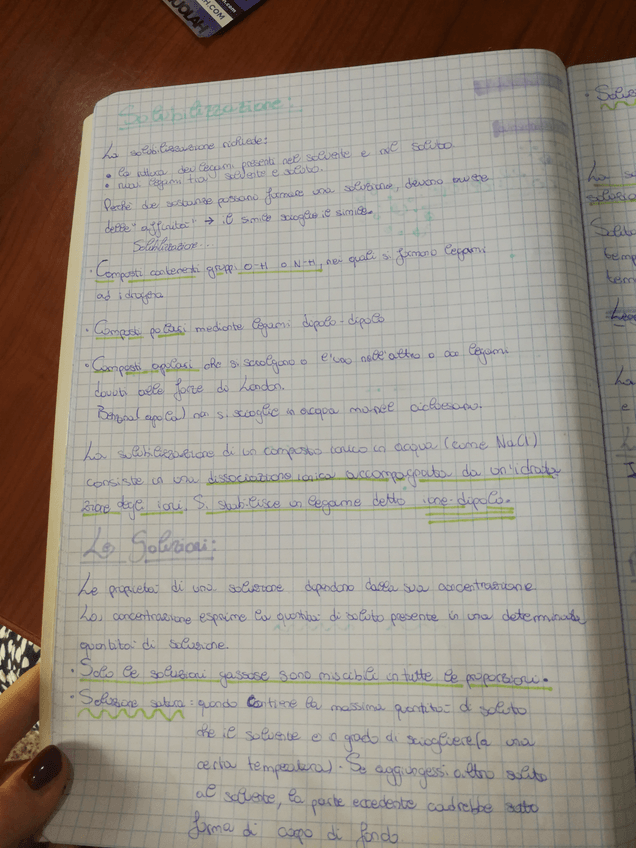 UOLAH
.COM
Solubilizzazione:
La solubilizzazione richiede:
• la rottura dei legami presenti nel solvente e nel soluto
• nuovi legami tra solvente e soluto.
Perché due sostanze possano formare una soluzione, devono avere
delle "affinità" → il simile scioglie il simile.
Solubilizzazione...
• Composti contenenti gruppi O-H o N-H, nei quali si formano legami
ad idrogeno
• Composti polari mediante legami dipolo-dipolo
• Composti apolari che si sciolgono l'uno nell'altro o con legami
dovuti alle forze di London.
(apola) non si scioglie in acqua ma nel cicloesano.
La solubilizzazione di un composto ionico in acqua (come NaCl)
consiste in una dissociazione ionica accompagnata da un'idrata
zione degli ioni. Si stabilisce un legame detto ione-dipolo.
Le Soluzioni:
Le proprietà di una soluzione dipendono dalla sua concentrazione.
La concentrazione esprime la quantità di soluto presente in una determinata
quantità di soluzione.
• Solo le soluzioni gassose sono miscibili in tutte le proporzioni.
• Soluzione satura: quando contiene la massima quantità di soluto
che il solvente è in grado di sciogliere (a una
certa temperatura). Se aggiungessi altro soluto
al solvente, la parte eccedente cadrebbe sotto
forma di corpo di fondo